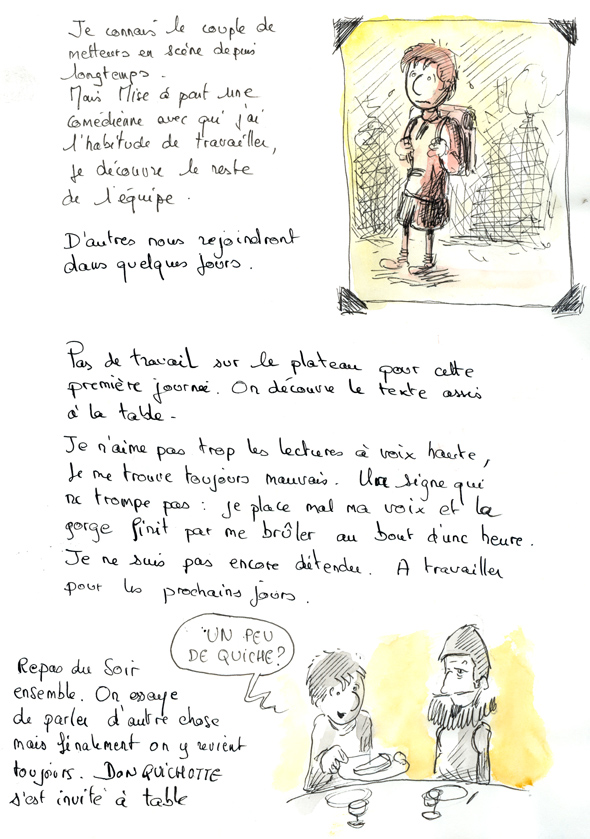 Je connais le couple de
metteurs en scène depuis
longtemps.
Mais Mise à part une
comédienne avec qui j'ai
l'habitude de travailler,
je découvre le reste
de l'équipe.
D'autres nous rejoindront
dans quelques jours.
Pas de travail sur le plateau pour cette
première journée. On découvre le texte assis
à la table.
Je n'aime pas trop les lectures à voix haute,
Je me trouve toujours mauvais. Un signe qui
ne trompe pas : je place mal ma voix et la
gorge finit par me brûler au bout d'une heure.
Je ne suis pas encore détendu. A travailler
pour les prochains jours.
"UN PEU
DE QUICHE?
Repas du Soir
ensemble. On essaye
de parler d'autre chose
mais finalement on y revient
toujours. DON QUICHOTTE
s'est invité à table